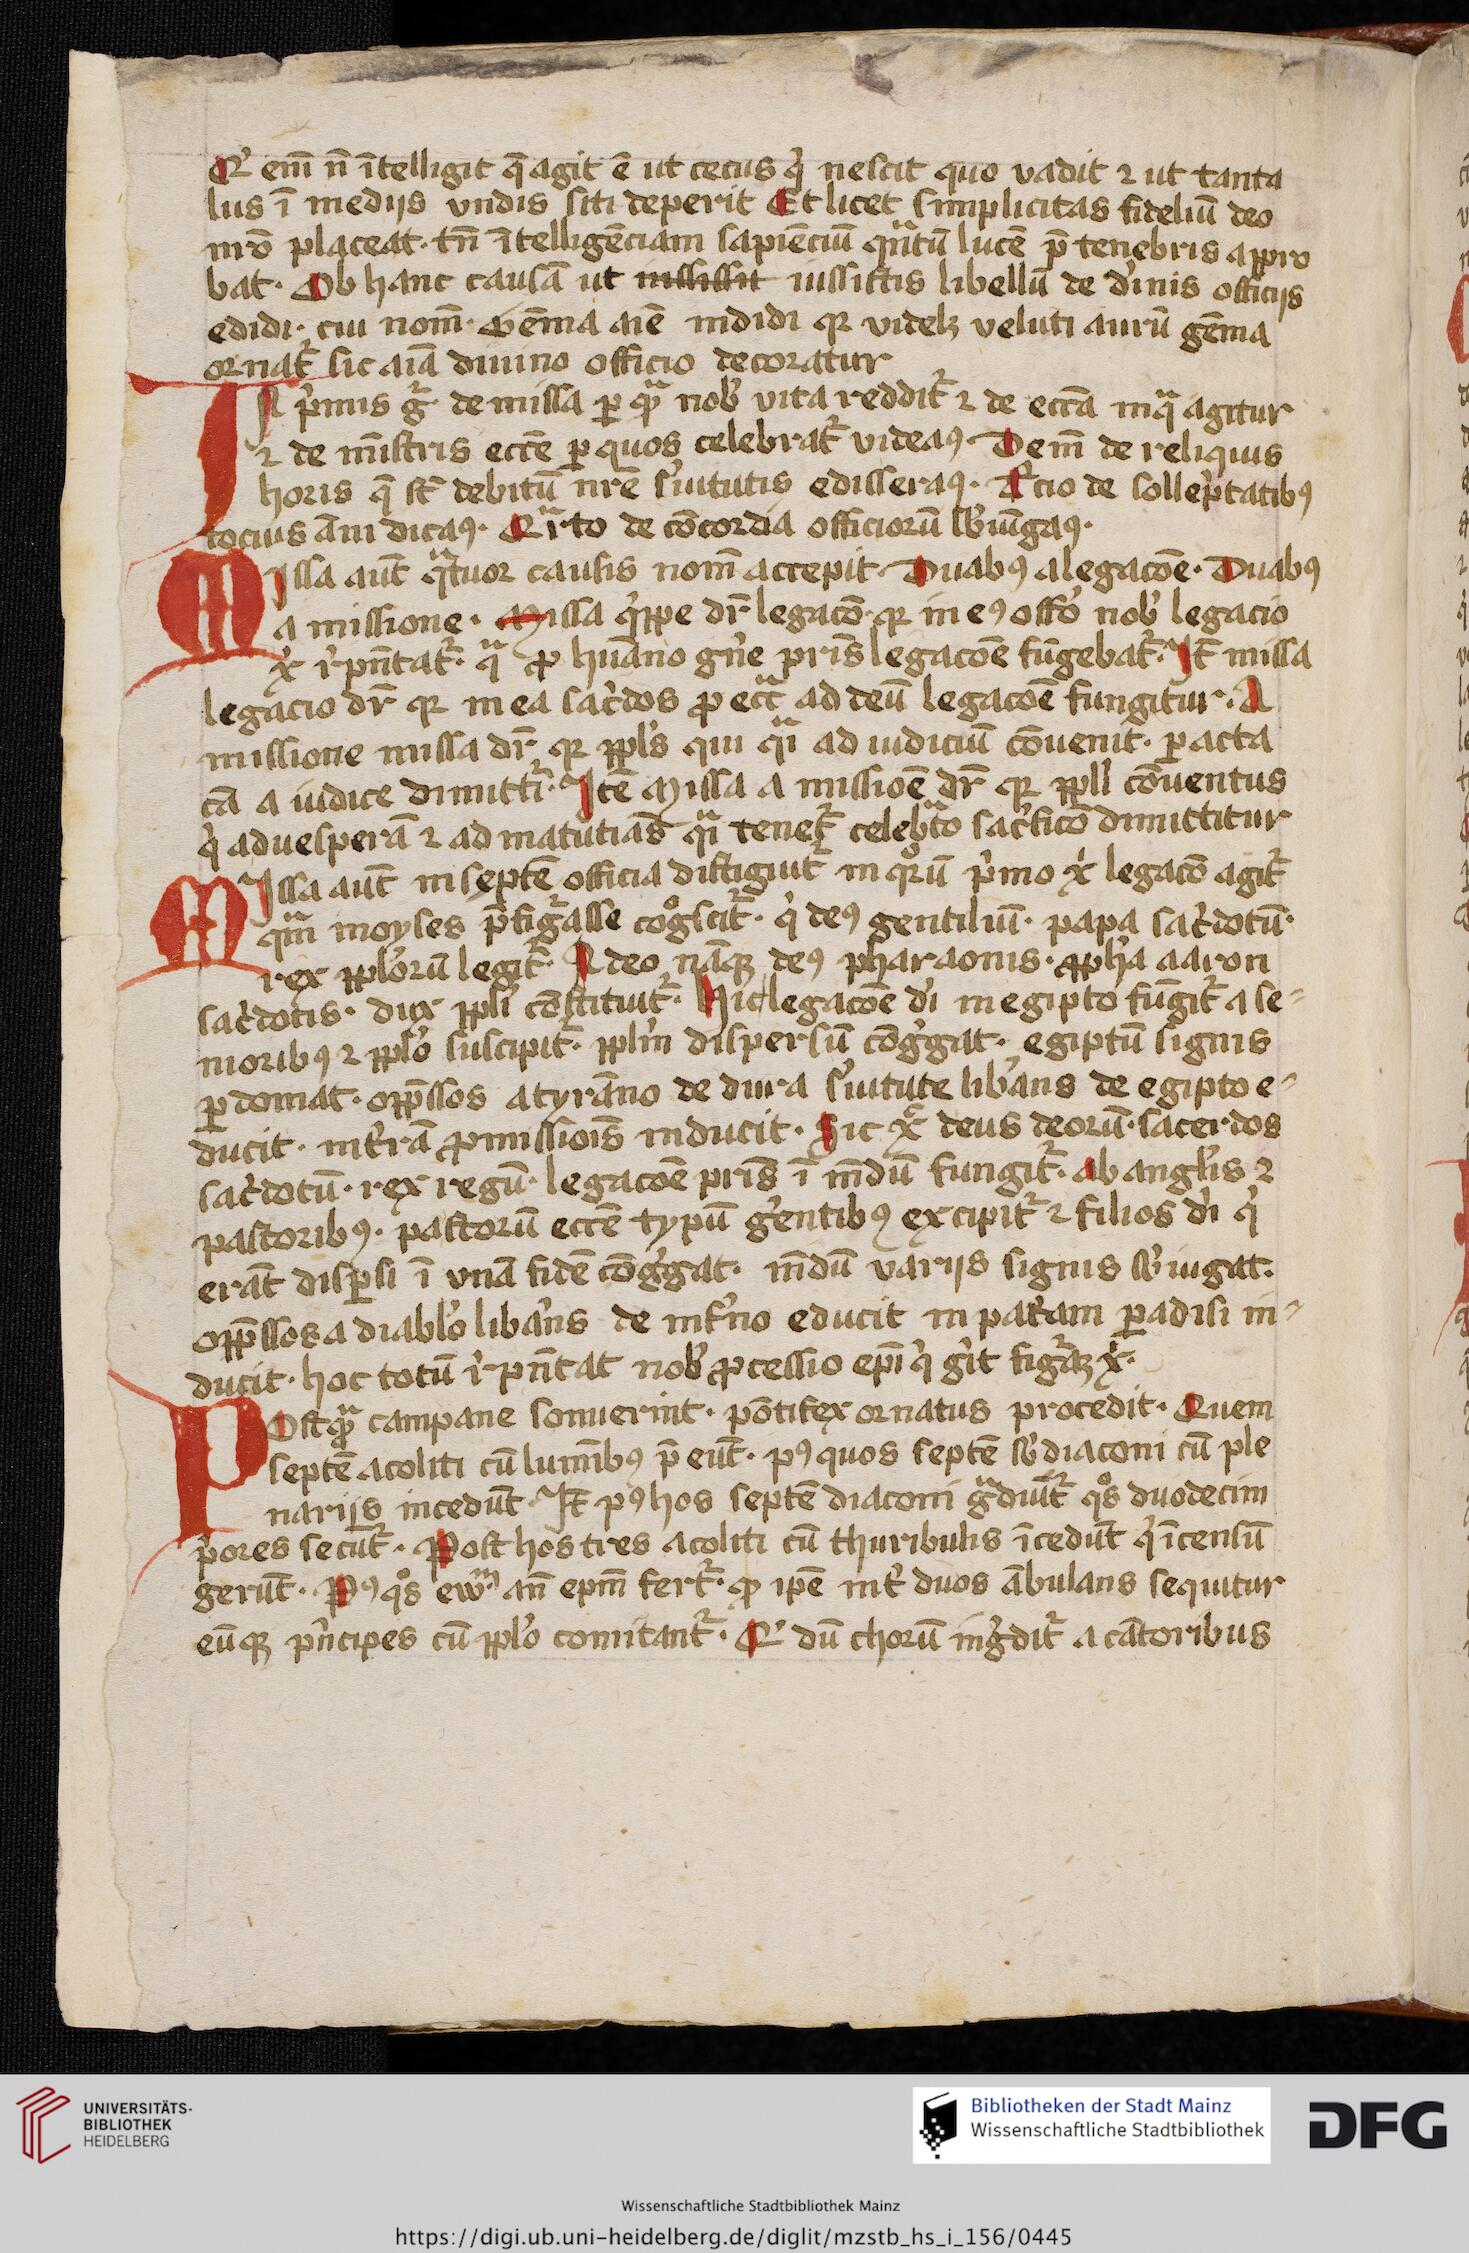 Qͥ em̄ n̄ ītelligit q̄ agit ē ut cecus qͥ nescit quo vadit ⁊ ut tanta
lus ī medijs vndis siti deperit Et licet simplicitas fideliū deo
mrō placeat · tn̄ ītelligēciam sapienciū qᷓntū lucē p̄ tenebris appro
bat · Ob hanc causā ut iussistis libellū de dīnis officijs
edidi · cui nom̄ · Gēma aīe indidi qꝛ videlꝫ veluti aurū gēma
ornat᷑ sic aīa diuino officio decoratur
IN pͥmis gͬ de missa ꝑ qᷓ nob̕ vita reddit᷑ ⁊ de ecc̄a in qᷓ agitur
⁊ de mīstris ecc̄e ꝑ quos celebrat᷑ videaꝰ · Dem̄ de reliquis
horis q̄ st̄ debitū nr̄e s̕uitutis edisseraꝰ · T̕cio de sollep̄tatibꝰ
tocius āni dicaꝰ · Qᷓrto de cōcordia officiorū s̕b iūgaꝰ ·
MIssa aut̄ qᷓtuor causis nom̄ accepit · Duabꝰ a legacōe · Duabꝰ
a missione · Missa qͥppe dr̄ legacō · qꝛ in eꝰ offō nob̕ legacio
xͥ rͤpn̄tat᷑ · qͣ ꝓ huāno gn̕e pris̄ legacōe fūgebat᷑ · It̄ missa
legacio dr̄ qꝛ in ea sac̕dos ꝓ eccᷓ ad deū legacōe fungitur · A
missione missa dr̄ qꝛ ppl̕s qui qᷓi ad iudiciū cōuenit · ꝑacta
cā a iudice dimittͥ · Itē Missa a missiōe dr̄ qꝛ ppl̕i cōuentus
qͥ ad uesperā ⁊ ad matutīas qᷓi tenet᷑ celebᷓto sac̕ficō dimittitur
MIssa aut̄ in septē officia distīgiut᷑ in qͦrū pͥmo xͥ legacō agit᷑
qᷓm moyses p̄figᷓsse cogͦscit᷑ · qͥ deꝰ gentiliū · papa sac̕dotū ·
rex ppl̕orū legit᷑ · A deo nāqꝫ deꝰ pharaonis · ꝓph̕a aaron
sac̕dotis · dux ppl̕i cōstituit᷑ · Hic legacōe dī in egipto fūgit᷑ a se-
nioribꝰ ⁊ ppl̕o suscipit᷑ · ppl̕m dispersū cōgͤgat · egiptū signis
ꝑdomat · opp̄ssos a tyrāno de dura s̕uitute lib̕ans de egipto e-
ducit · in t̕rā ꝓmissiōis inducit · Sic xᷦ deus deorū · sacerdos
sac̕dotū · rex regū · legacōe pris̄ ī mūdū fungit᷑ · ab angl̕is ⁊
pastoribꝰ · pastorū ecc̄e typū g̕entibꝰ excipit᷑ ⁊ filios dī qͥ
erāt disꝑsi ī vnā fidē cōgͤgat · mūdū varijs signis s̕biugat ·
opp̄ssos a diabl̕o lib̕ans de inf̕no educit in patͥam ꝑadisi in-
ducit · hoc totū rͤpn̄tat nob̕ ꝓcessio epī qͥ g̕it figᷓꝫ xͥ ·
POst qᷓ campane sonuerint · pōtifex ornatus procedit · Quem
septē acoliti cū lumībꝰ p̄eūt · pꝰ quos septē s̕bdiaconi cū ple
narijs incedūt · It̄ pꝰ hos septē diaconi gᷓdiūt᷑ qͦs duodecim
pͥores secūt᷑ · Post hos tres acoliti cū thuribulis īcedūt qͥ īcensū
gerūt · Pꝰ qͦs ewᷓ an̄ epm̄ fert᷑ · ꝓ ipē int̕ duos ābulans sequitur
eūqꝫ pͥncipes cū ppl̕o comitant᷑ · Qͥ dū chorū ingͤdit᷑ a cātoribus
UNIVERSITÄTS-
BIBLIOTHEK
HEIDELBERG
Bibliotheken der Stadt Mainz
Wissenschaftliche Stadtbibliothek
DFG
Wissenschaftliche Stadtbibliothek Mainz
https://digi.ub.uni-heidelberg.de/diglit/mzstb_hs_i_156/0445